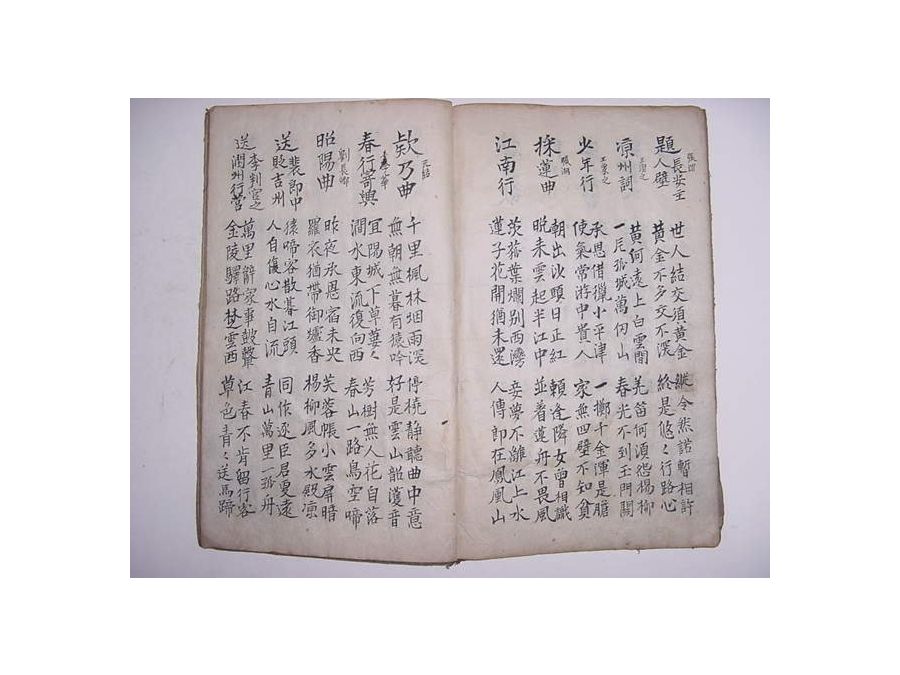 題長安主人壁
張謂
世人結交須黄金 縱令然諾暫相許
黄金不多交不深 終是悠々行路心
凉州詞
王之渙
黄河遠上白雲間 羌笛何須怨楊柳
一片孤城萬仞山 春光不到玉門關
少年行
吳象之
承恩借獵小平津 一擲千金渾是膽
使氣常游中貴人 家無四壁不知貧
採蓮曲
張潮
朝出沙頭日正紅 賴逢隣女曾相識
晩未雲起半江中 並着蓮舟不畏風
江南行
茨菰葉爛别西灣 妾夢不離江上水
蓮子花開猶未還 人傳郎在鳳凰山
欸乃曲
元結
千里楓林烟雨深 停橈静聽曲中意
無朝無暮有猿吟 好是雲山韶濩音
春行寄興
李華
宜陽城下草萋々 芳樹無人花自落
澗水東流復向西 春山一路鳥空啼
昭陽曲
劉長卿
昨夜承恩宿未央 芙蓉帳小雲屏暗
羅衣猶帶御爐香 楊柳風多水殿凉
送裴郎中貶吉州
猿啼客散暮江頭 同作逐臣君更遠
人自傷心水自流 青山萬里一孤舟
送李判官之潤州行營
萬里辭家事鼓鼙 江春不肯留行客
金陵驛路楚雲西 草色青々送馬蹄